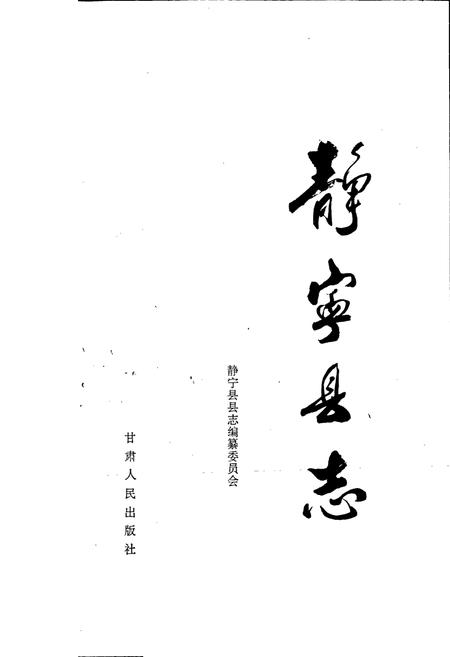 静寧县志
静宁县县志编纂委员会
甘肃人民出版社